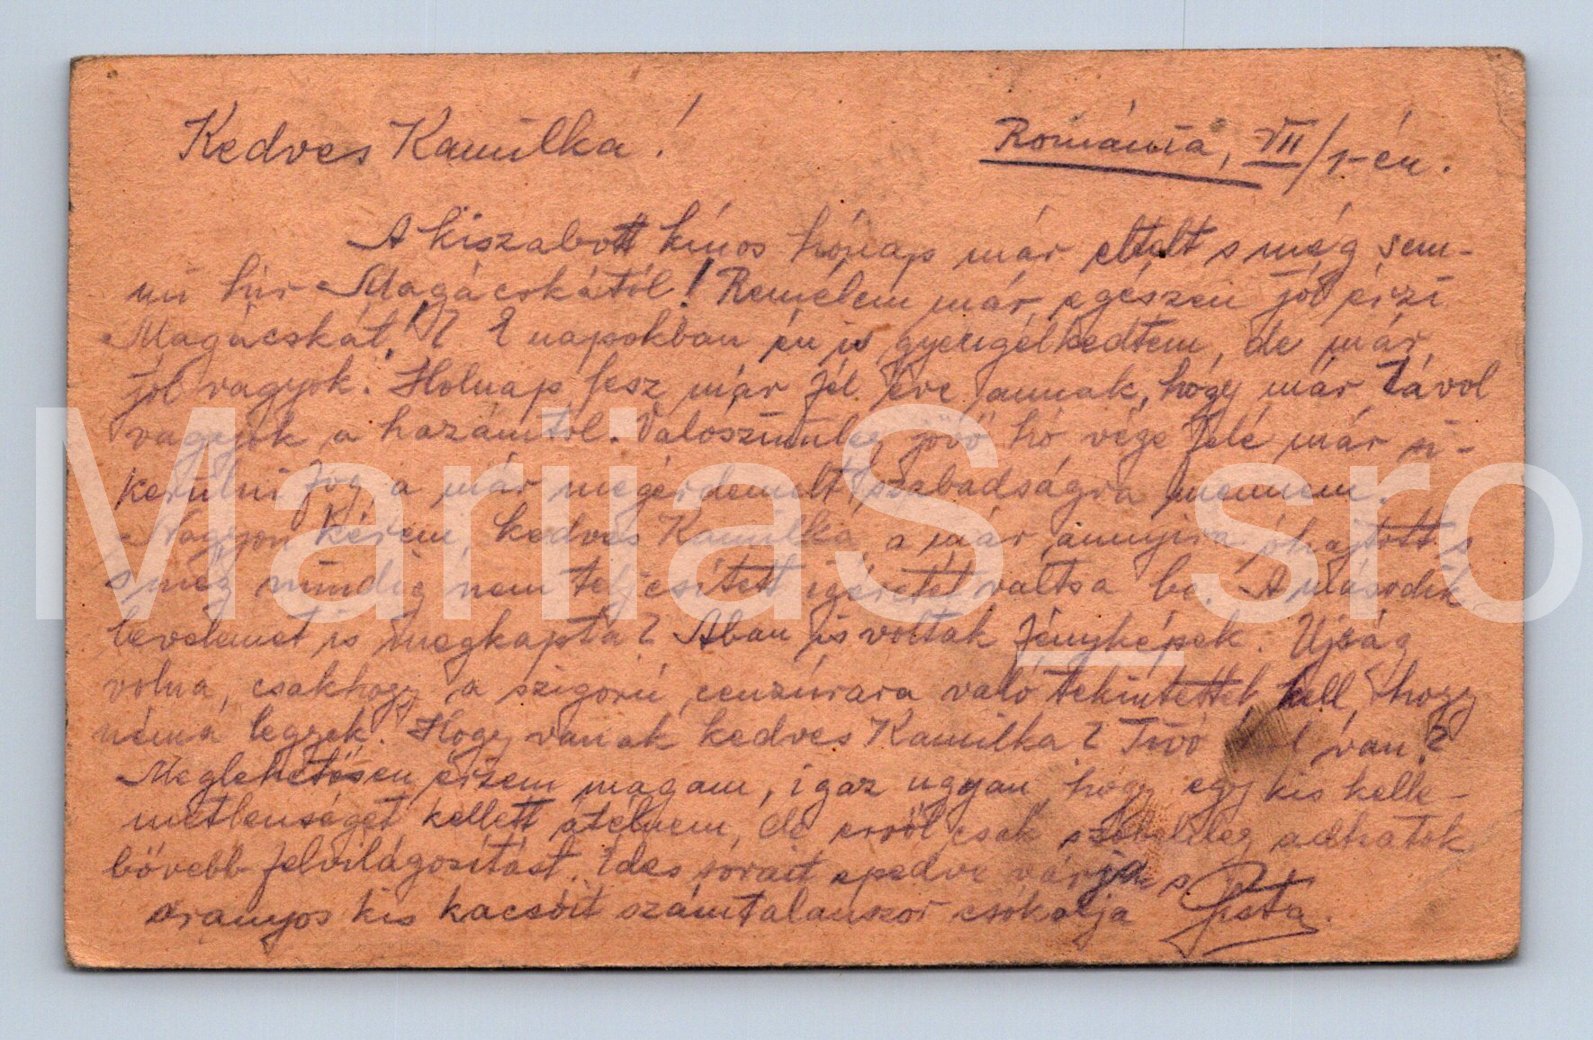 Kedves Kamilka!
Románia, VII/1-én.
A kiszabott kínos hónap már eltelt s még sem-
mi hír Magácskától! Remélem már egészen jól érzi
Magácskát! ? E napokban én is gyengélkedtem, de már
jól vagyok. Holnap lesz már fél éve annak, hogy már távol
vagyok a hazámtól. Valószínűleg jövő hó vége felé már si-
kerülni fog a már megérdemelt szabadságra mennem.
Nagyon kérem, kedves Kamilka, a már annyira óhajtott s
s még mindig nem teljesített igéretét váltsa be. A második
levelemet is megkapta? Abban is voltak fényképek. Ujság
volna, csakhogy a szigorú cenzúrára való tekintettel kell, hogy
néma legyek. Hogy vannak kedves Kamilka? Tivó van?
Meglehetősen érzem magam, igaz ugyan hogy egy kis kelle-
metlenséget kellett átélnem, de erről csak szóbelileg adhatok
bővebb felvilágosítást. Édes sorait epedve várja s
aranyos kis kacsóit számtalanszor csókolja Pista.
MariiaS sro